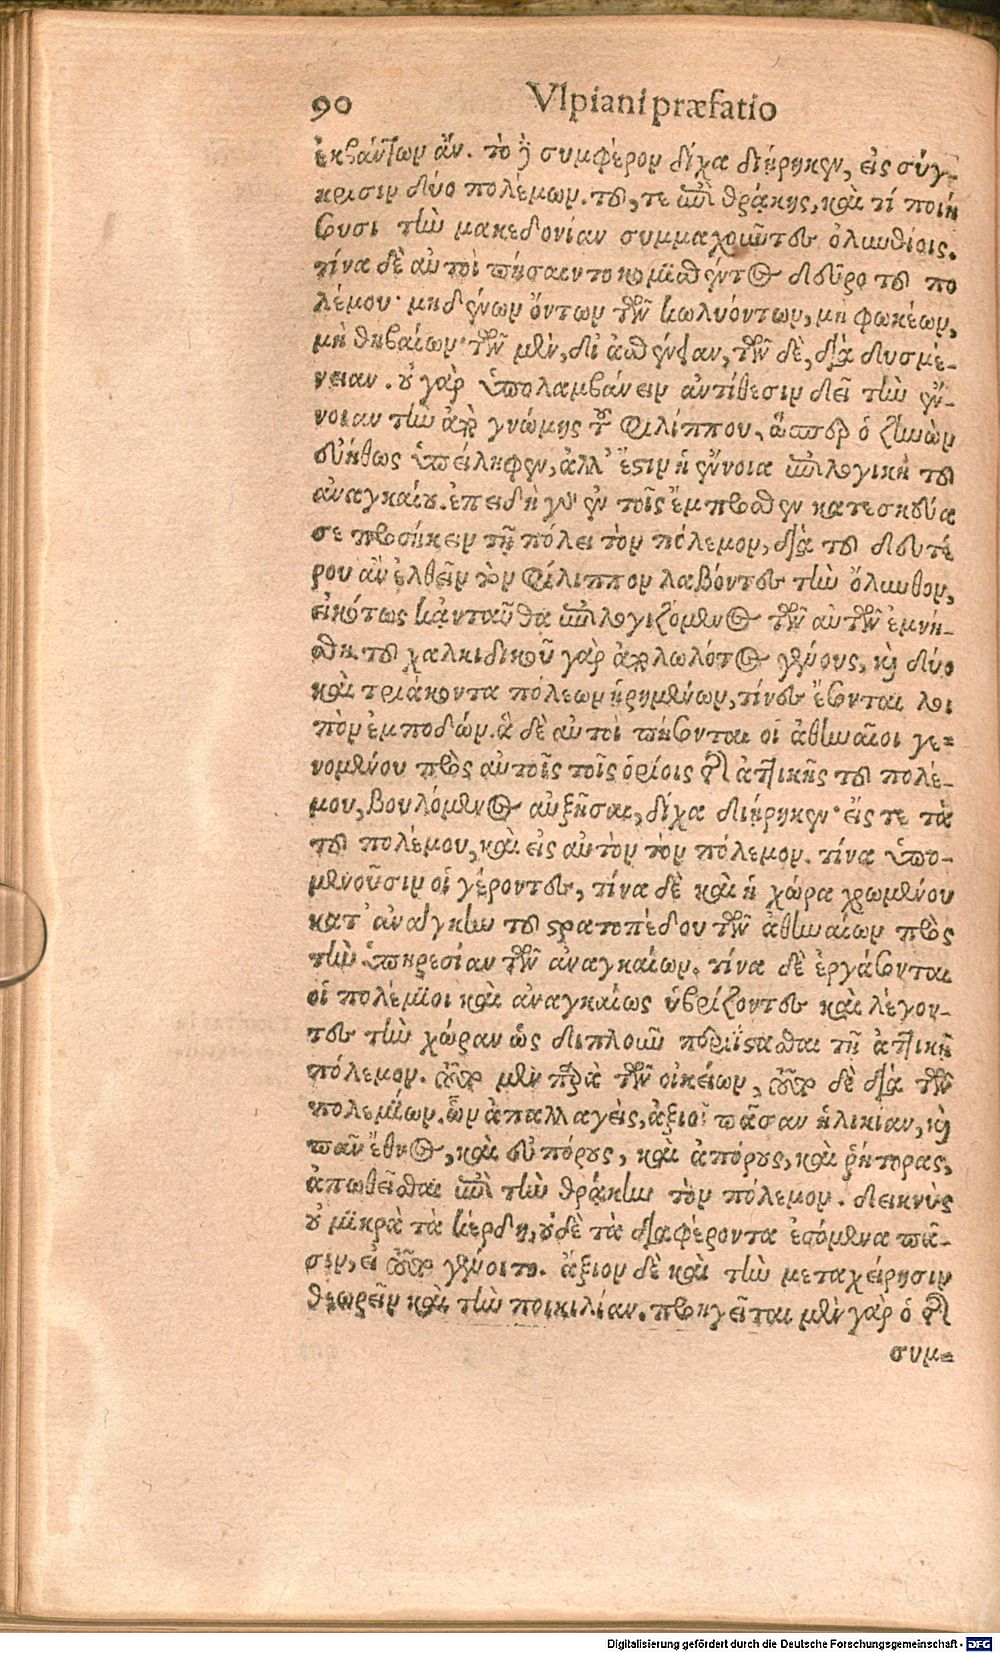 90 Vlpiani præfatio
ἐκβάντων ἄν. τὸ δὲ συμφέρον δίχα διῄρηκεν, εἰς σύγ-
κρισιν δύο πολέμων. τοῦ, τε ἐπὶ θρᾴκης, καὶ τί ποιή
σουσι τὴν μακεδονίαν συμμαχοῦντες ὀλυνθίοις.
τίνα δὲ αὐτοὶ πήσαιντο κομισθέντος δεῦρο τοῦ πο
λέμου· μηδένων ὄντων τῶν κωλυόντων, μὴ φωκέων,
μὴ θηβαίων· τῶν μὲν, δι' ἀσθένειαν, τῶν δὲ, διὰ δυσμέ-
νειαν. οὐ γὰρ ὑπολαμβάνειν ἀντίθεσιν δεῖ τὴν ἔν-
νοιαν τὴν ἀπὸ γνώμης τοῦ Φιλίππου, ὥσπερ ὁ ζήνων
εὐήθως ὑπείληφεν, ἀλλ' ἔστιν ἡ ἔννοια ἐπιλογικὴ τοῦ
ἀναγκαίου. ἐπειδὴ γὰρ ἐν τοῖς ἔμπροσθεν κατεσκεύα
σε προσήκειν τῇ πόλει τὸν πόλεμον, διὰ τοῦ δευτέ
ρου ἂν ἐλθεῖν τὸν Φίλιππον λαβόντες τὴν ὄλυνθον,
εἰκότως κἀνταῦθα ἐπιλογιζόμενος τῶν αὐτῶν ἐμνή-
σθη. τοῦ χαλκιδικοῦ γὰρ ἀπολωλότος γένους, καὶ δύο
καὶ τριάκοντα πόλεων ᾑρημένων, τίνες ἔσονται λοι
πὸν ἐμποδών. ἃ δὲ αὐτοὶ πήσονται οἱ ἀθηναῖοι γε-
νομένου πρὸς αὐτοῖς τοῖς ὁρίοις τῆς ἀττικῆς τοῦ πολέ-
μου, βουλόμενος αὐξῆσαι, δίχα διῄρηκεν· εἴς τε τὰ
τοῦ πολέμου, καὶ εἰς αὐτὸν τὸν πόλεμον. τίνα ὑπο-
μενοῦσιν οἱ γέροντες, τίνα δὲ καὶ ἡ χώρα χρωμένου
κατ' ἀνάγκην τοῦ στρατοπέδου τῶν ἀθηναίων πρὸς
τὴν ὑπηρεσίαν τῶν ἀναγκαίων. τίνα δὲ ἐργάσονται
οἱ πολέμιοι καὶ ἀναγκαίως ὑβρίζοντες καὶ λέγον-
τες τὴν χώραν ὡς διπλοῦν περιίστασθαι τῇ ἀττικῇ
πόλεμον. τοῦτον μὲν παρὰ τῶν οἰκείων, τοῦτον δὲ διὰ τῶν
πολεμίων. ὧν ἀπαλλαγεὶς, ἀξιοῖ πᾶσαν ἡλικίαν, καὶ
πᾶν ἔθνος, καὶ εὐπόρους, καὶ ἀπόρους, καὶ ῥήτορας,
ἀπωθεῖσθαι ἐπὶ τὴν θρᾴκην τὸν πόλεμον. δεικνὺς
οὐ μικρὰ τὰ κέρδη, οὐδὲ τὰ διαφέροντα ἐσόμενα πᾶ-
σιν, εἰ τοῦτο γένοιτο. ἄξιον δὲ καὶ τὴν μεταχείρησιν
θεωρεῖν καὶ τὴν ποικιλίαν. προηγεῖται μὲν γὰρ ὁ τῆς
συμ-
Digitalisierung gefördert durch die Deutsche Forschungsgemeinschaft - DFG